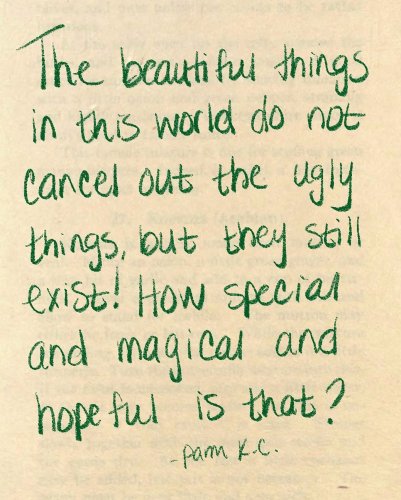 The beautiful things
in this world do not
cancel out the ugly
things, but they still
exist! How special
and magical and
hopeful is that?
-Pam K.C.